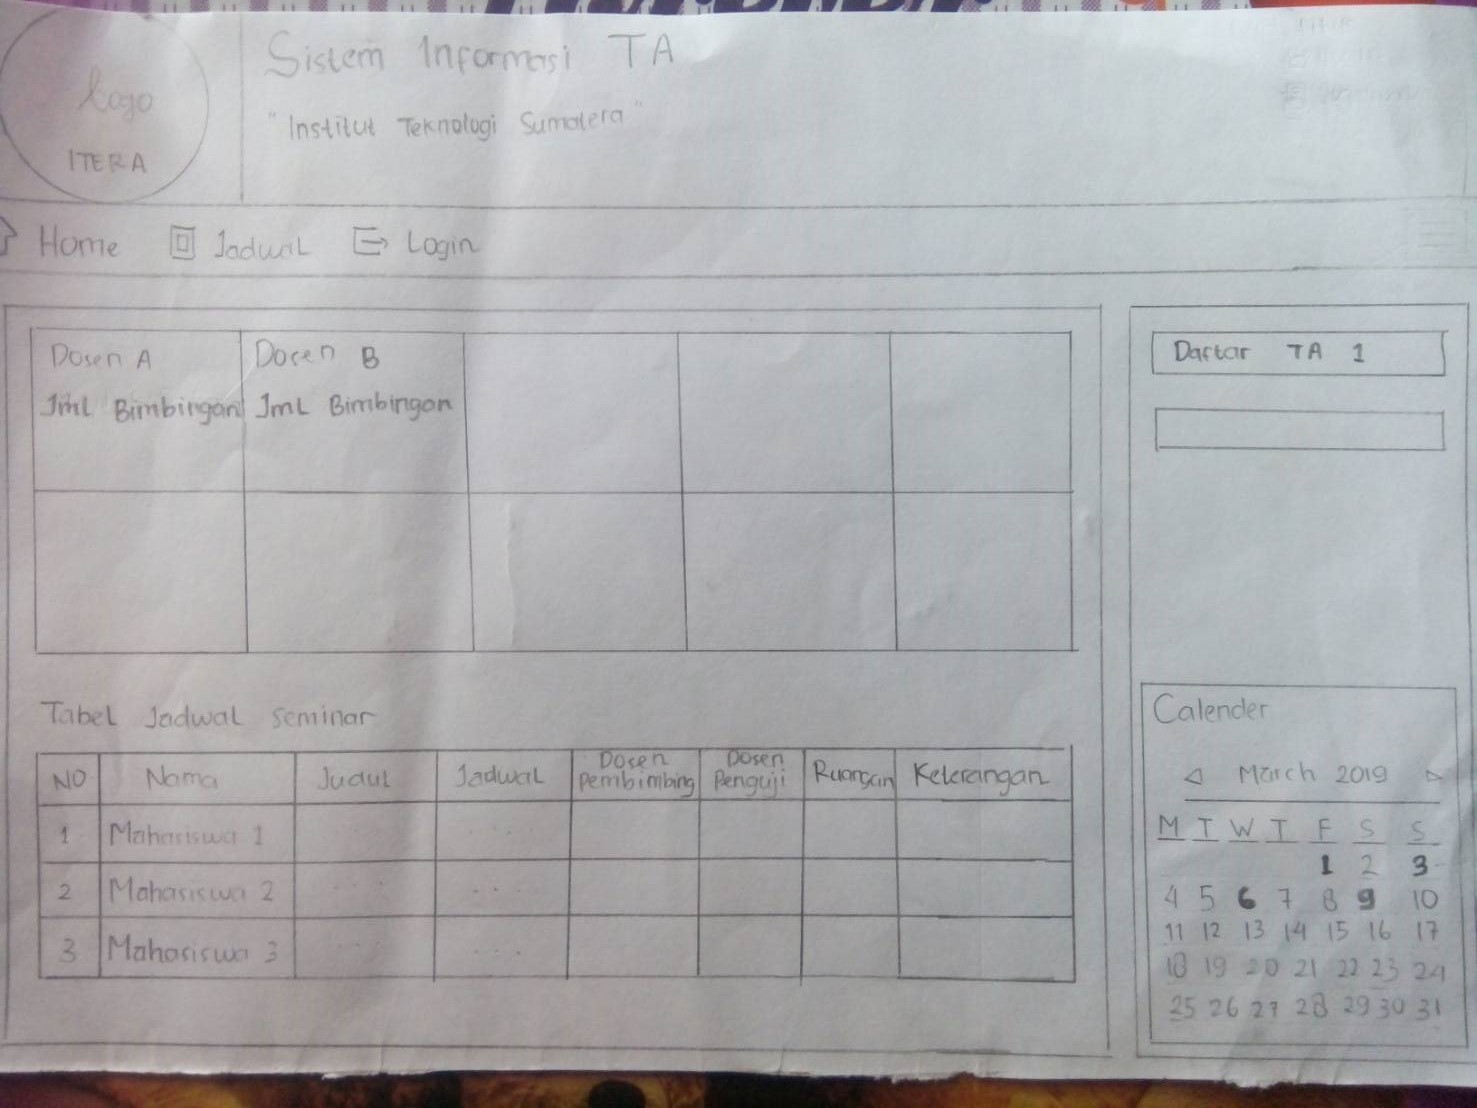 Logo
ITERA
Sistem Informasi TA
"Institut Teknologi Sumatera"
Home Jadwal Login
Dosen A
Jml Bimbingan
Dosen B
Jml Bimbingan
Daftar TA 1
Tabel Jadwal Seminar
NO Nama Judul Jadwal Dosen Pembimbing Dosen Penguji Ruangan Keterangan
1 Mahasiswa 1 ... ...
2 Mahasiswa 2 ... ...
3 Mahasiswa 3 ... ...
Calender
March 2019
M T W T F S S
1 2 3
4 5 6 7 8 9 10
11 12 13 14 15 16 17
18 19 20 21 22 23 24
25 26 27 28 29 30 31